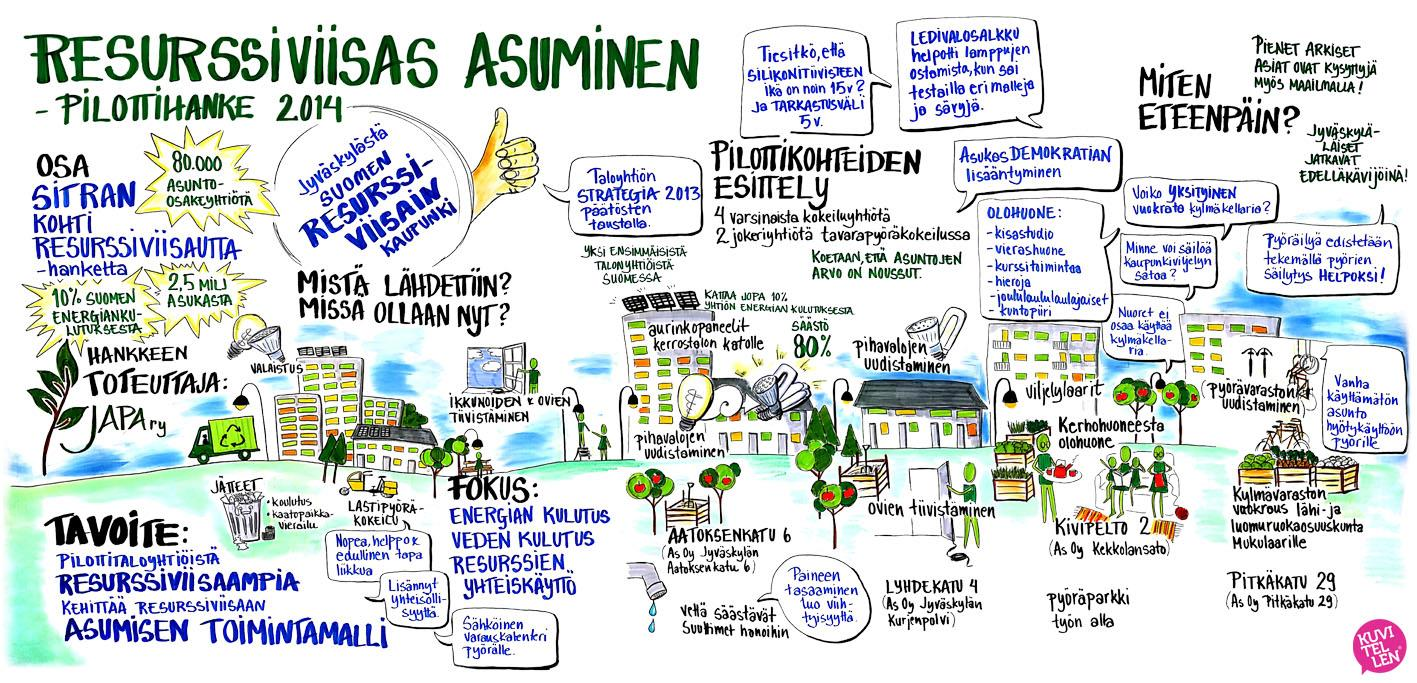 RESURSSIVIISAS ASUMINEN
- PILOTTIHANKE 2014
OSA
SITRAN
KOHTI
RESURSSIVIISAUTTA
-hanketta
80.000
ASUNTO-
OSAKEYHTIÖTÄ
10% SUOMEN
ENERGIANKU-
LUTUKSESTA
2,5 MILJ
ASUKASTA
Jyväskylästä
SUOMEN
RESURSSI-
VIISAIN
KAUPUNKI
MISTÄ LÄHDETTIIN?
MISSÄ OLLAAN NYT?
HANKKEEN
TOTEUTTAJA:
JAPA ry
VALAISTUS
IKKUNOIDEN & OVIEN
TIIVISTÄMINEN
JÄTTEET
• KOULUTUS
• KAATOPAIKKA-
VIERAILU
LASTIPYÖRÄ-
KOKEILU
TAVOITE:
PILOTTITALOYHTIÖISTÄ
RESURSSIVIISAAMPIA
KEHITTÄÄ RESURSSIVIISAAN
ASUMISEN TOIMINTAMALLI
Nopea, helppo &
edullinen tapa
liikkua
Lisännyt
yhteisölli-
syyttä.
Sähköinen
varauskalenteri
pyörälle.
FOKUS:
ENERGIAN KULUTUS
VEDEN KULUTUS
RESURSSIEN
YHTEISKÄYTTÖ
Taloyhtiön
STRATEGIA 2013
päätösten
taustalla.
YKSI ENSIMMÄISISTÄ
TALOYHTIÖISTÄ
SUOMESSA
KATTAA JOPA 10%
YHTIÖN ENERGIAN KULUTUKSESTA
aurinkopaneelit
kerrostalon katolle
SÄÄSTÖ
80%
pihavalojen
uudistaminen
AATOKSENKATU 6
(As Oy Jyväskylän
Aatoksenkatu 6)
vettä säästävät
suuttimet hanoihin
Paineen
tasaaminen
tuo viih-
tyisyyttä.
Tiesitkö, että
SILIKONITIIVISTEEN
ikä on noin 15v?
Ja TARKASTUSVÄLI
5v.
LEDIVALOSALKKU
helpotti lamppujen
ostamista, kun sai
testailla eri malleja
ja sävyjä.
PILOTTIKOHTEIDEN
ESITTELY
4 varsinaista kokeiluyhtiötä
2 jokeriyhtiötä tavarapyöräkokeilussa
KOETAAN, ETTÄ ASUNTOJEN
ARVO ON NOUSSUT.
pihavalojen
uudistaminen
ovien tiivistäminen
LYHDEKATU 4
(As Oy Jyväskylän
Kurjenpolvi)
Asukas DEMOKRATIAN
lisääntyminen
OLOHUONE:
- kisastudio
- vierashuone
- kurssitoimintaa
- hieroja
- joululaululaulajaiset
- kuntopiiri
viljelylaarit
Kerhohuoneesta
olohuone
KIVIPELTO 2
(As Oy Kekkolansato)
pyöräparkki
työn alla
MITEN
ETEENPÄIN?
PIENET ARKISET
ASIAT OVAT KYSYTTYJÄ
MYÖS MAAILMALLA!
JYVÄSKYLÄ-
LÄISET
JATKAVAT
EDELLÄKÄVIJÖINÄ!
Voiko YKSITYINEN
vuokrata kylmäkellaria?
Minne voi säilöä
kaupunkiviljelyn
satoa?
Nuoret ei
osaa käyttää
kylmäkella-
ria.
Pyöräilyä edistetään
tekemällä pyörien
säilytys HELPOKSI!
pyörävaraston
uudistaminen
Vanha
käyttämätön
asunto
hyötykäyttöön
pyörille
Kylmävaraston
vuokraus lähi- ja
luomuruokaosuuskunta
Mukulaarille
PITKÄKATU 29
(As Oy Pitkäkatu 29)
KUVI
TEL
LEN